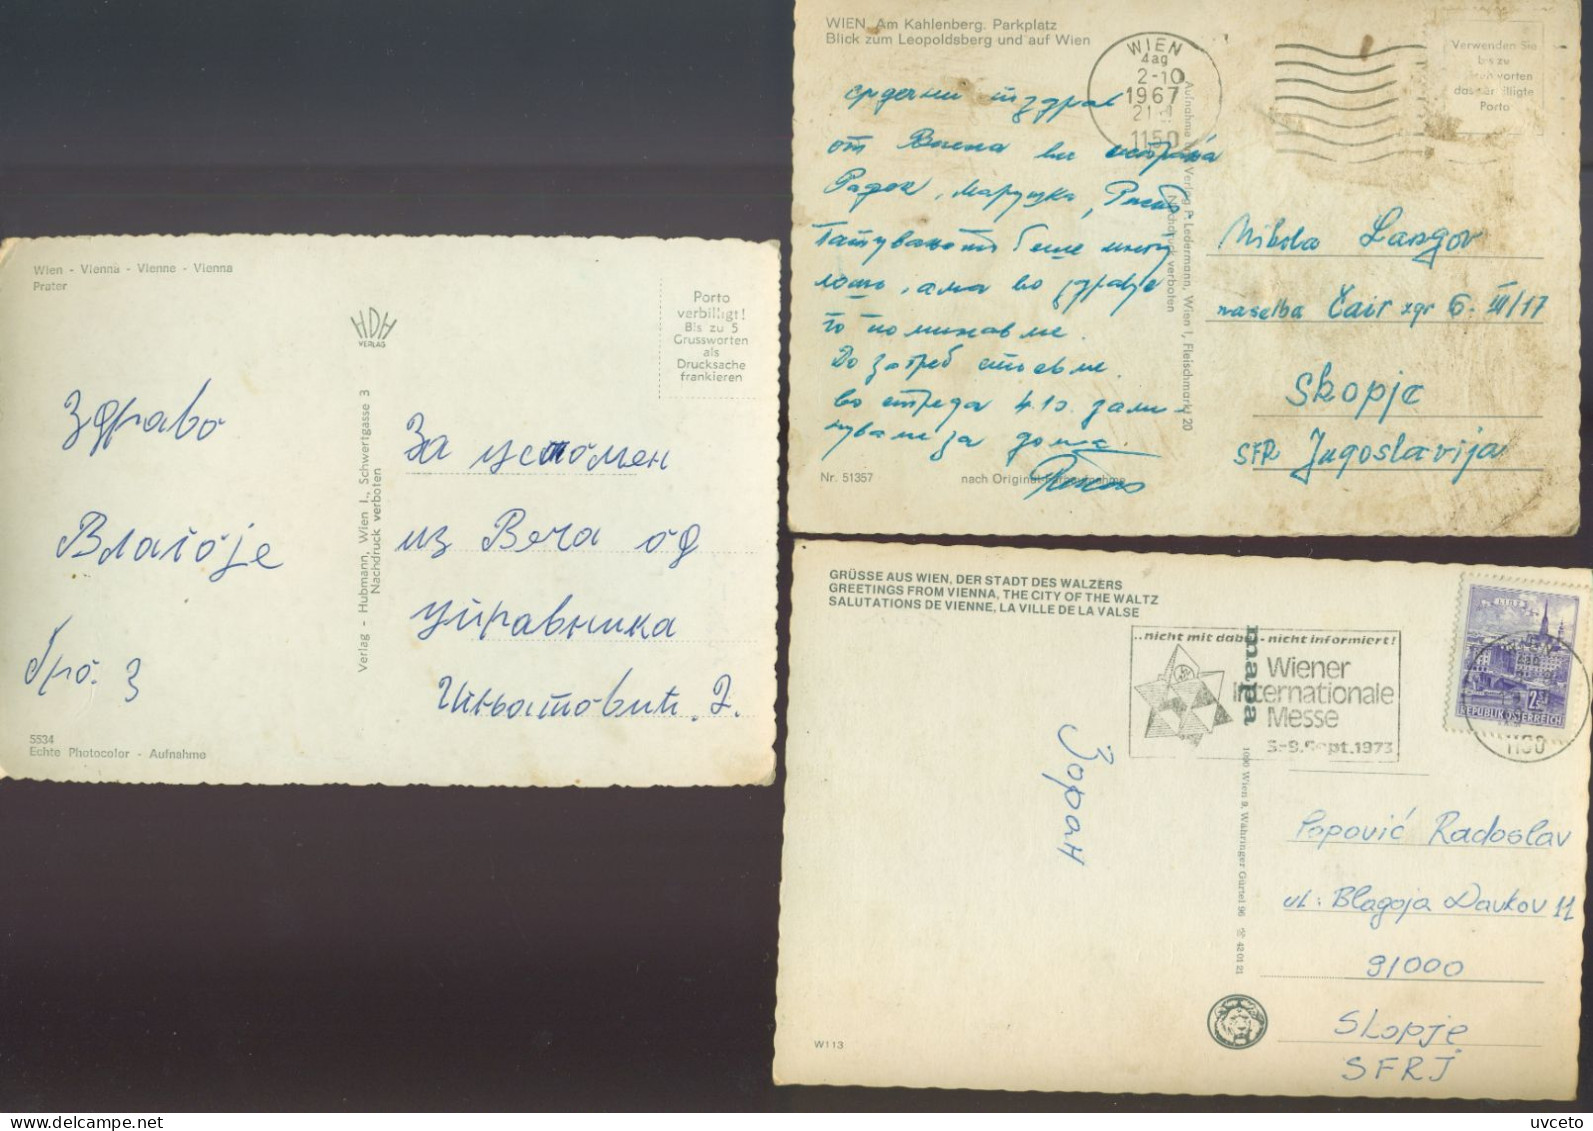 Wien - Vienna - Vienne - Vienna
Prater
HDH
VERLAG
Porto
verbilligt!
Bis zu 5
Grussworten
als
Drucksache
frankieren
Здраво
Благоје
бро. 3
За успомен
из Беча од
управника
Игњатовић. Д.
Verlag - Hubmann, Wien I., Schwertgasse 3
Nachdruck verboten
5534
Echte Photocolor - Aufnahme
WIEN, Am Kahlenberg. Parkplatz
Blick zum Leopoldsberg und auf Wien
WIEN
4ag
2-10
1967
21
1150
Verwenden Sie
bis zu
worten
das
Porto
срдечни поздрав
от Виена ви испраќа
Радок, Марушка, Ристо
Патувањето беше многу
лошо, ама во здравје
го поминавме.
До Загреб стоевме.
во среда 4.10. зами-
нуваме за дома.
Aufnahme und Verlag P. Ledermann, Wien 1, Fleischmarkt 20
Nachdruck verboten
Nikola Langov
naselba Čair zgr 6. III/17
Skopje
SFR Jugoslavija
Nr. 51357
nach Original-Farbaufnahme
GRÜSSE AUS WIEN, DER STADT DES WALZERS
GREETINGS FROM VIENNA, THE CITY OF THE WALTZ
SALUTATIONS DE VIENNE, LA VILLE DE LA VALSE
..nicht mit dabei - nicht informiert!
Wiener
Internationale
Messe
5-9.Sept.1973
mapa
1090 Wien 9, Währinger Gürtel 96 ☎ 42 01 21
LINZ
2.50
REPUBLIK ÖSTERREICH
WIEN
1150
Зоран
Popović Radoslav
ul: Blagoja Davkov 11
91000
Skopje
SFRJ
W113
uvceto